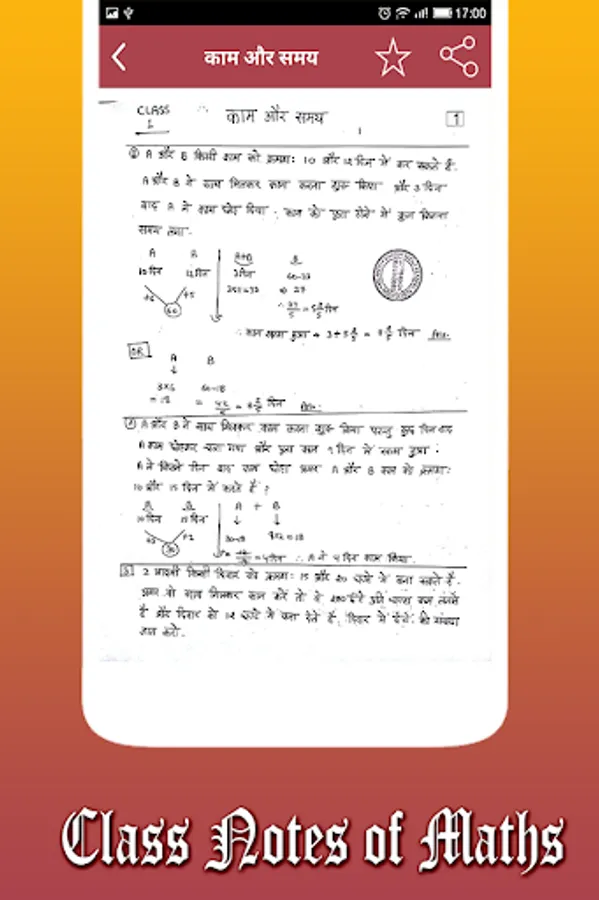 17:00
काम और समय
CLASS
1
काम और समय
1
A और B किसी काम को क्रमशः 10 और 12 दिन में कर सकते हैं.
A और B ने साथ मिलकर काम करना शुरू किया और 3 दिन
बाद A ने काम छोड़ दिया. काम को पूरा होने में कुल कितना
समय लगा.
A B A+B B
10 दिन 12 दिन 3 दिन 60-33
+6 +5 = 27
60
OR
A B
3×6 60-18
= 18
A और B ने साथ मिलकर काम करना शुरू किया परन्तु कुछ दिन बाद
A काम छोड़कर चला गया और पूरा काम 9 दिन में खत्म हुआ.
A ने कितने दिन बाद काम छोड़ा अगर A और B काम को क्रमशः
10 और 15 दिन में करते हैं ?
A B A + B
10 दिन 15 दिन
30 30-18 9×2=18
= 4 दिन ∴ A ने 4 दिन काम किया.
3 2 आदमी किसी दिवार को क्रमशः 15 और 20 घण्टे में बना सकते हैं.
अगर वो साथ मिलकर काम करें तो वे
है और दिवार को 12 घण्टे में बना देते हैं. दिवार में ईंटों की संख्या
ज्ञात करो.
Class Notes of Maths